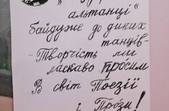 альтанці"
байдуже до диких
танців-
- Творчість ми
ласкаво просим
В світ Поезії
і Прози!